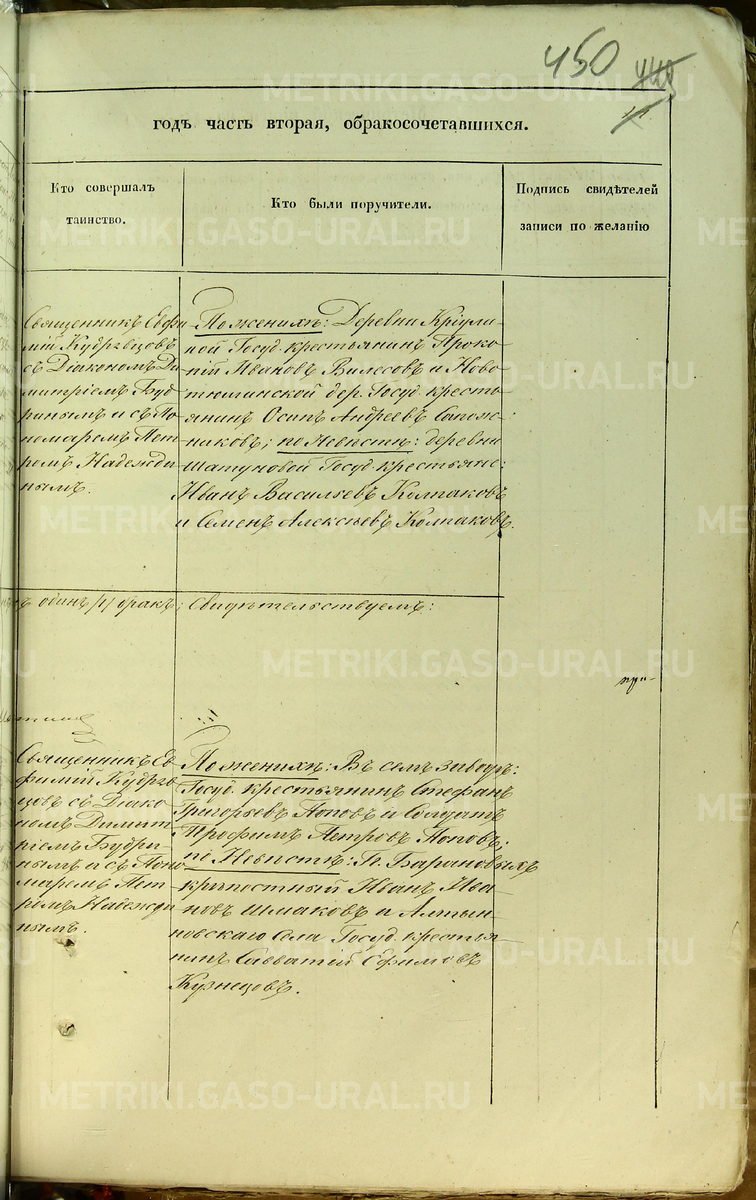 450
годъ часть вторая, обракосочетавшихся.
Кто совершалъ
таинство.
Кто были поручители.
Подпись свидѣтелей
записи по желанію
Священникъ Евфи
мій Кудрявцовъ
съ Діакономъ Ди
митріемъ Будри
нымъ и съ По
номаремъ Пет
ромъ Надежди
нымъ.
По женихѣ: Деревни Криули
ной Госуд. крестьянинъ Проко
пій Ивановъ Вилесовъ и Ново
дер. Госуд. кресть
янинъ Осипъ Андреевъ Сапож
никовъ; по Невѣстѣ: деревни
Шатуновой Госуд. крестьяне:
Иванъ Васильевъ Колпаковъ
и Семенъ Алексѣевъ Колпаковъ.
одинъ /1/ бракъ; Свидѣтельствуемъ:
Священникъ Ев
фимій Кудряв
цовъ съ Діако
номъ Димит
ріемъ Будри
нымъ и съ Поно
маремъ Пет
ромъ Надежди
нымъ.
По женихѣ: Въ семъ заводѣ:
Госуд. крестьянинъ Стефанъ
Григорьевъ Поповъ и Солдатъ
Трофимъ Петровъ Поповъ;
по Невѣстѣ: Г. Барановыхъ
крѣпостный Иванъ Ива
новъ Шмаковъ и Алтын
новскаго Села Госуд. крестья
нинъ Савватей Ефимовъ
Кузнецовъ.
METRIKI.GASO-URAL.RU